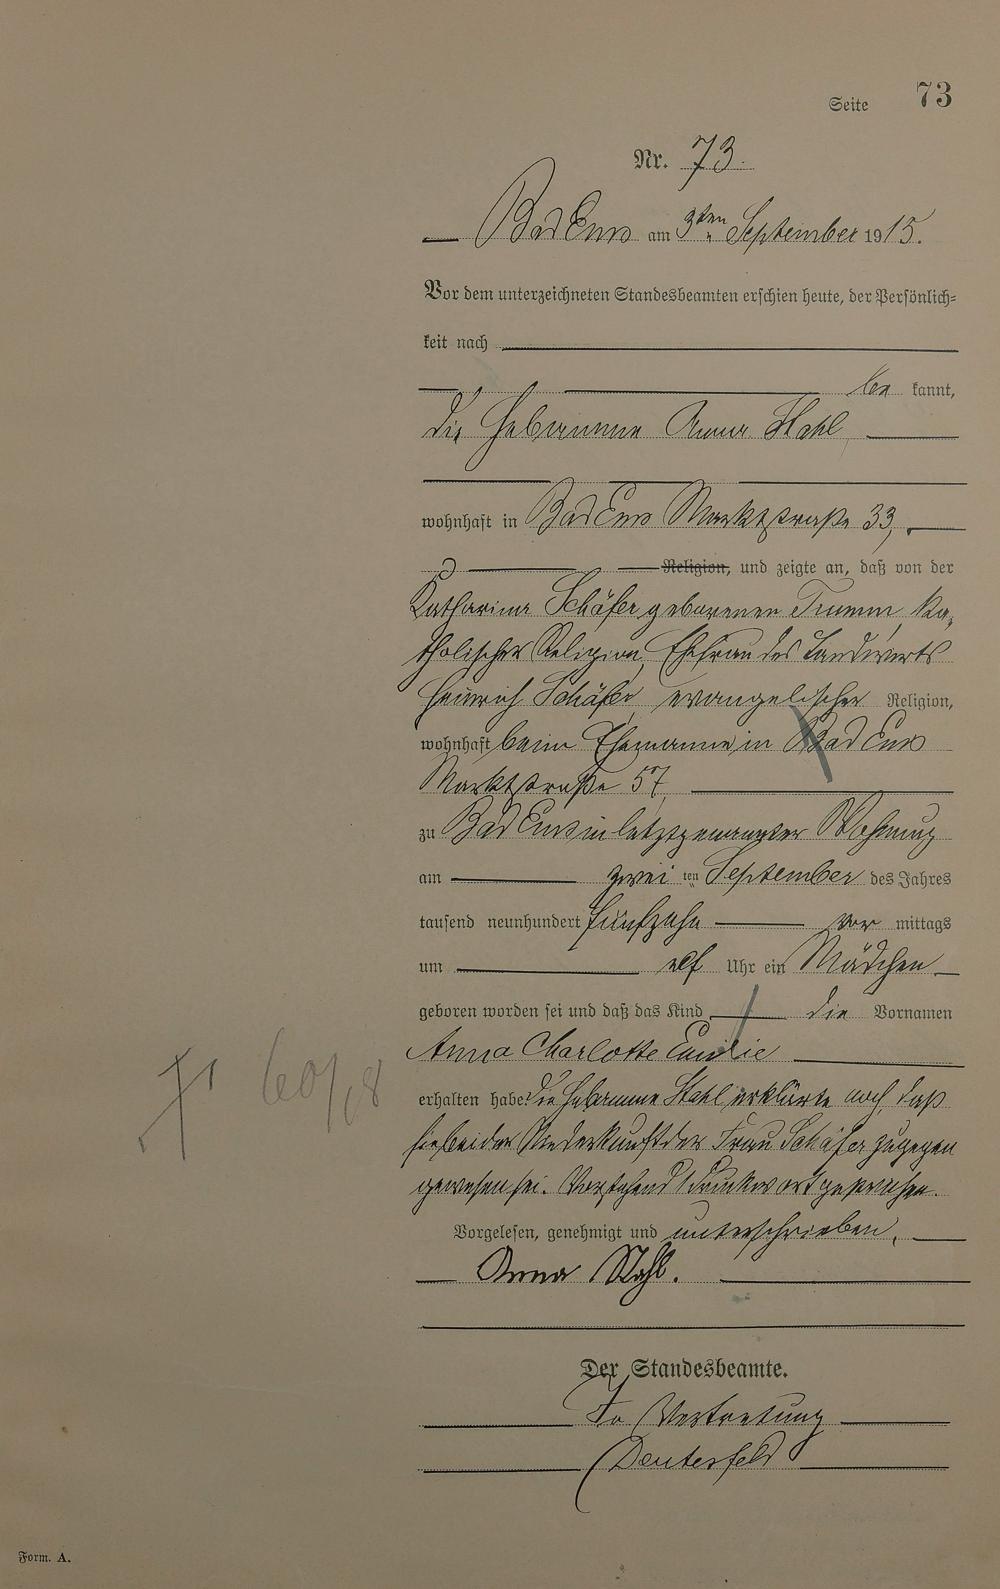 Seite 73
Nr. 73.
Bad Ems am 3ten September 1915.
Vor dem unterzeichneten Standesbeamten erschien heute, der Persönlich=
keit nach
be kannt,
die Hebamme Anna Stahl
wohnhaft in Bad Ems Marktstraße 33,
Religion, und zeigte an, daß von der
Katharina Schäfer geborenen Trumm, ka,
tholischer Religion, Ehefrau des Landwirts
Heinrich Schäfer, evangelischer Religion,
wohnhaft beim Ehemanne in Bad Ems
Marktstraße 57,
zu Bad Ems in letztgenannter Wohnung
am zwei ten September des Jahres
tausend neunhundert fünfzehn vor mittags
um elf Uhr ein Mädchen
geboren worden sei und daß das Kind die Vornamen
Anna Charlotte Emilie
erhalten habe. Die Hebamme Stahl erklärte noch, daß
sie bei der Niederkunft der Frau Schäfer zugegen
gewesen sei. Vorstehend 1 Druckwort gestrichen.
Vorgelesen, genehmigt und unterschrieben.
Anna Stahl.
Der Standesbeamte.
In Vertretung
60/18
Form. A.